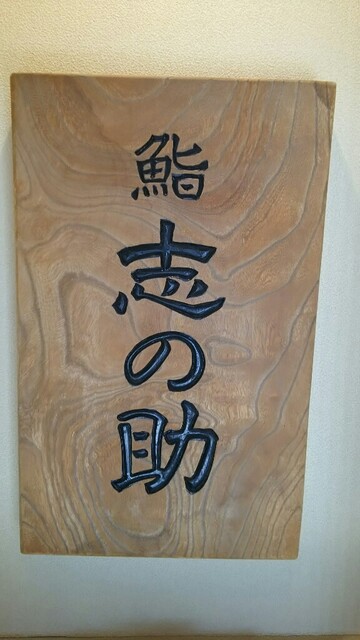 鮨
志の助